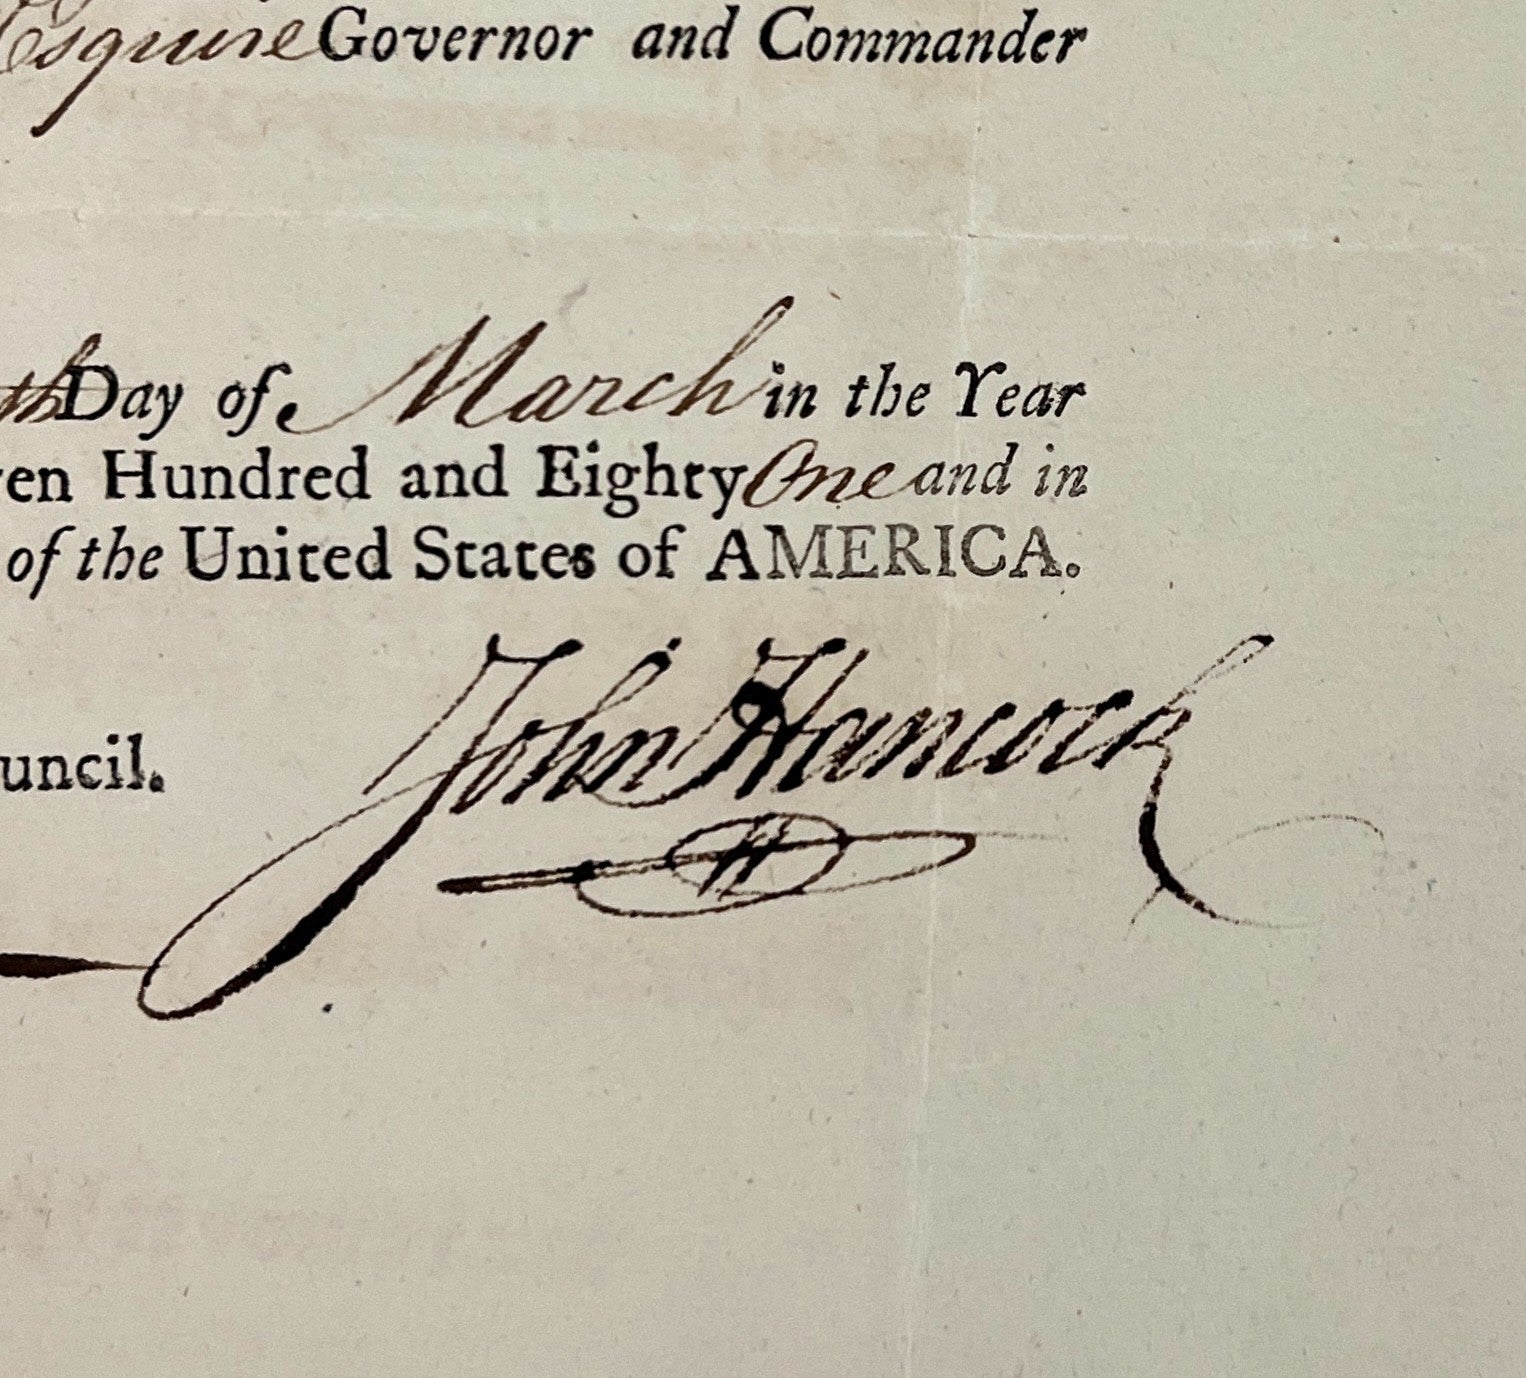 Esquire Governor and Commander
th Day of March in the Year
ven Hundred and Eighty One and in
of the United States of AMERICA.
John Hancock
uncil.